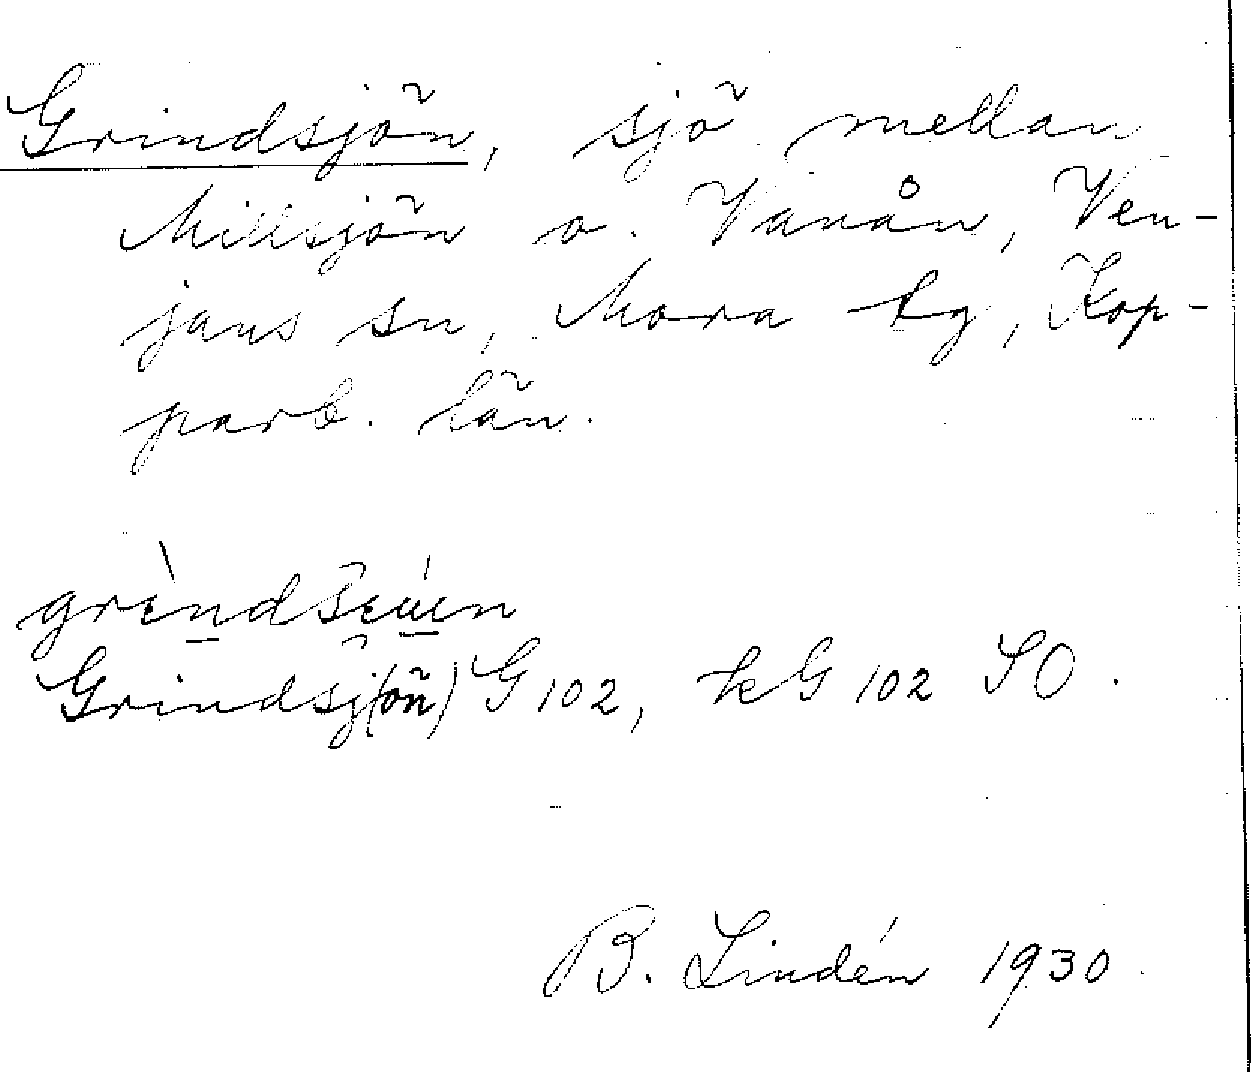 Grindsjön, sjö mellan
Millsjön o. Vanån, Ven-
jans sn, Mora tg, Kop-
parb. län.
Grindsj(ön) G 102, kG 102 SO.
B. Lindén 1930.